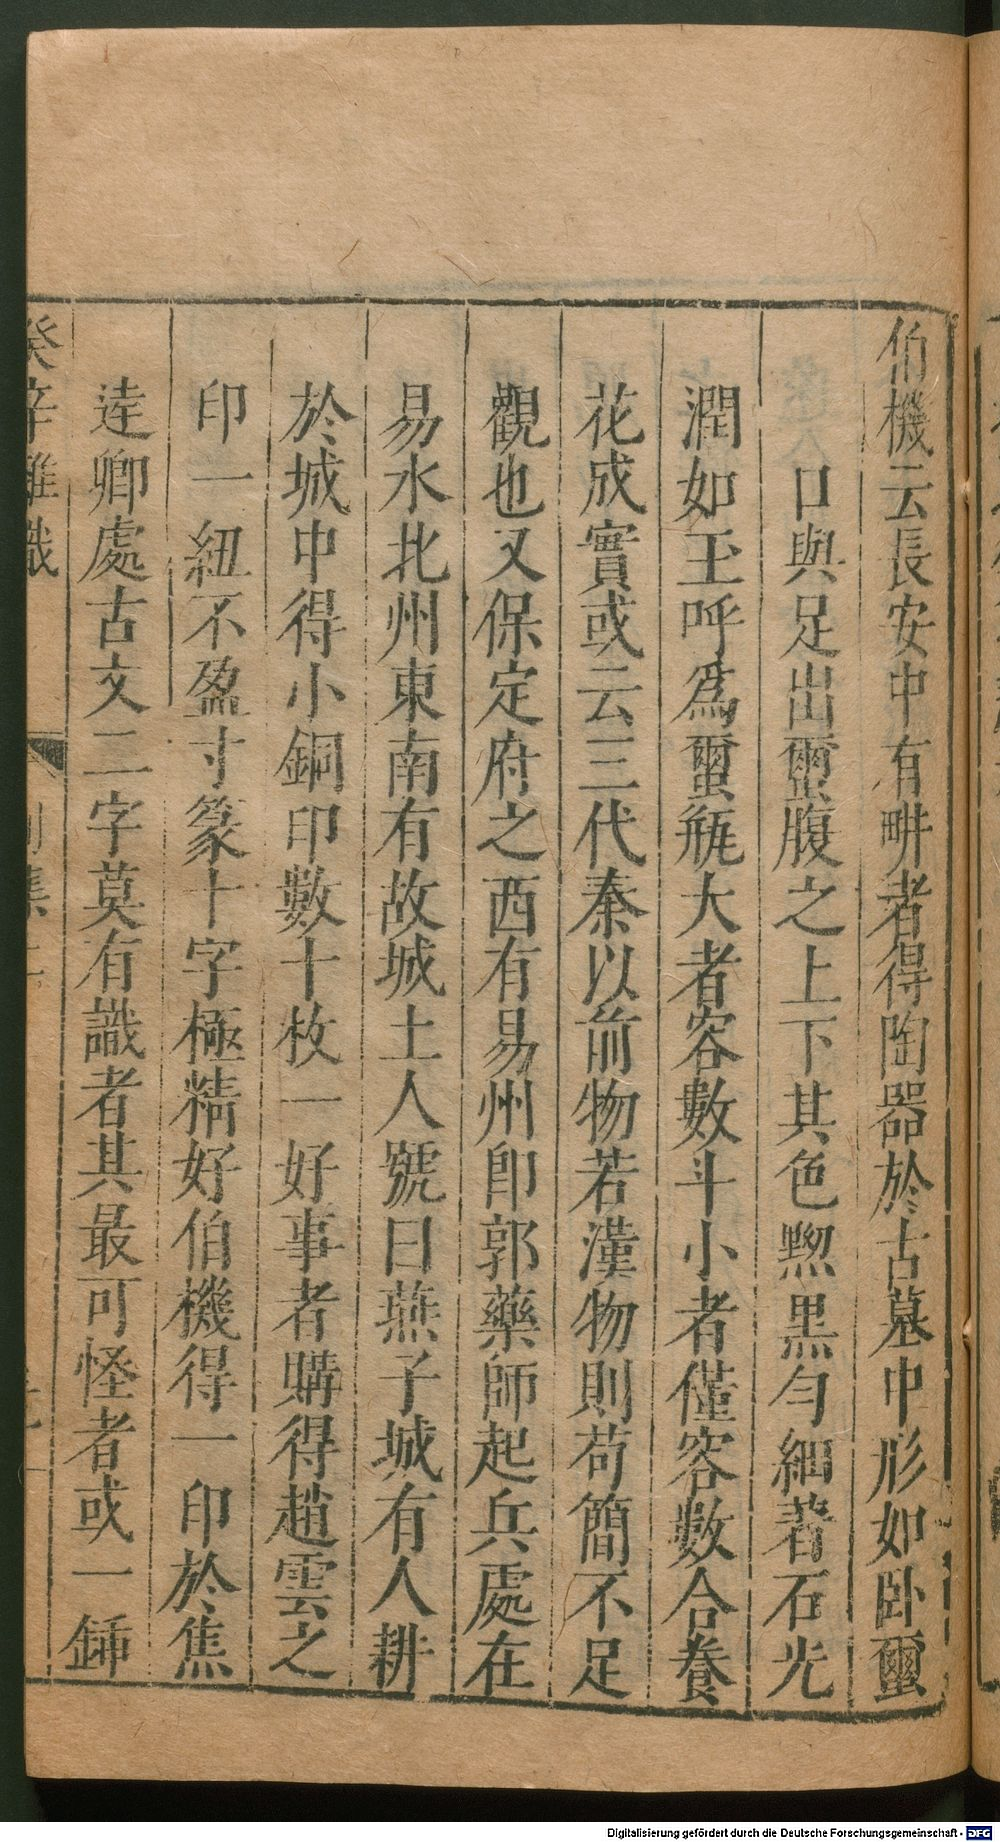 伯機云長安中有畊者得陶器於古墓中形如卧壐
口與足出壐腹之上下其色黳黒勻細若石光
潤如玉呼爲壐瓶大者容數斗小者僅容數合養
花成實或云三代秦以前物若漢物則苟簡不足
觀也又保定府之西有易州卽郭藥師起兵處在
易水北州東南有故城土人號曰燕子城有人耕
於城中得小銅印數十枚一好事者購得趙雲之
印一紐不盈寸篆十字極精好伯機得一印於焦
逹卿處古文二字莫有識者其最可怪者或一鍤
癸辛雜識
別集
Digitalisierung gefördert durch die Deutsche Forschungsgemeinschaft - DFG